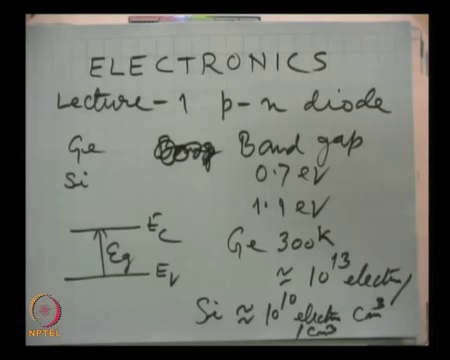 ELECTRONICS
Lecture - 1 p-n diode
Ge Band gap
Si 0.7 eV
1.1 eV
Ec
Eg
Ev
Ge 300K
≈ 10^13 electron/
cm^3
Si ≈ 10^10 electron
/cm^3
NPTEL